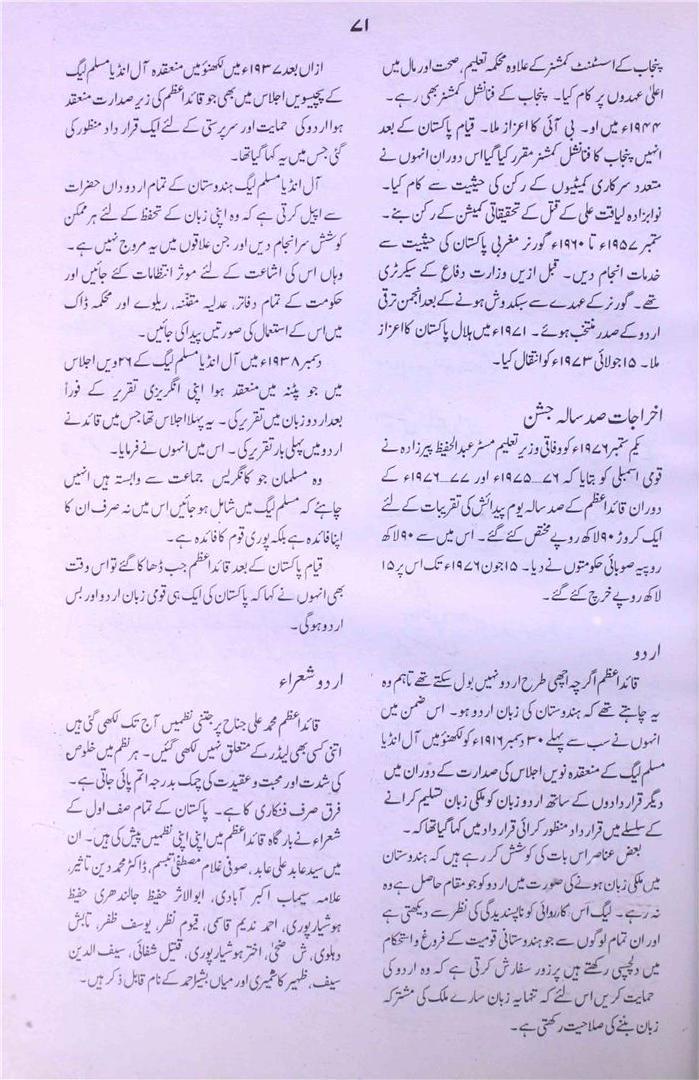 ۷۱
پنجاب کے اسسٹنٹ کمشنر کے علاوہ محکمہ تعلیم، صحت اور مال میں
اعلیٰ عہدوں پر کام کیا۔ پنجاب کے فنانشل کمشنر بھی رہے۔
۱۹۴۴ء میں او۔ بی آئی کا اعزاز ملا۔ قیام پاکستان کے بعد
انہیں پنجاب کا فنانشل کمشنر مقرر کیا گیا اس دوران انہوں نے
متعدد سرکاری کمیٹیوں کے رکن کی حیثیت سے کام کیا۔
نوابزادہ لیاقت علی کے قتل کے تحقیقاتی کمیشن کے رکن بنے۔
ستمبر ۱۹۵۷ء تا ۱۹۶۰ء گورنر مغربی پاکستان کی حیثیت سے
خدمات انجام دیں۔ قبل ازیں وزارت دفاع کے سیکرٹری
تھے۔ گورنر کے عہدے سے سبکدوش ہونے کے بعد انجمن ترقی
اردو کے صدر منتخب ہوئے۔ ۱۹۷۱ء میں ہلال پاکستان کا اعزاز
ملا۔ ۱۵ جولائی ۱۹۷۳ء کو انتقال کیا۔
اخراجات صد سالہ جشن
یکم ستمبر ۱۹۷۶ء کو وفاقی وزیر تعلیم مسٹر عبدالحفیظ پیرزادہ نے
قومی اسمبلی کو بتایا کہ ۷۶۔۱۹۷۵ء اور ۷۷۔۱۹۷۶ء کے
دوران قائداعظم کے صد سالہ یوم پیدائش کی تقریبات کے لئے
ایک کروڑ ۹۰ لاکھ روپے مختص کئے گئے۔ اس میں سے ۹۰ لاکھ
روپیہ صوبائی حکومتوں نے دیا۔ ۱۵ جون ۱۹۷۶ء تک اس پر ۱۵
لاکھ روپے خرچ کئے گئے۔
اردو
قائداعظم اگرچہ اچھی طرح اردو نہیں بول سکتے تھے تاہم وہ
یہ چاہتے تھے کہ ہندوستان کی زبان اردو ہو۔ اس ضمن میں
انہوں نے سب سے پہلے ۳۰ دسمبر ۱۹۱۶ء کو لکھنؤ میں آل انڈیا
مسلم لیگ کے منعقدہ نویں اجلاس کی صدارت کے دوران میں
دیگر قراردادوں کے ساتھ اردو زبان کو ملکی زبان تسلیم کرانے
کے سلسلے میں قرارداد منظور کرائی قرارداد میں کہا گیا تھا کہ۔
بعض عناصر اس بات کی کوشش کر رہے ہیں کہ ہندوستان
میں ملکی زبان ہونے کی صورت میں اردو کو جو مقام حاصل ہے وہ
نہ رہے۔ لیگ اس کارروائی کو ناپسندیدگی کی نظر سے دیکھتی ہے
اور ان تمام لوگوں سے جو ہندوستانی قومیت کے فروغ و استحکام
میں دلچسپی رکھتے ہیں پر زور سفارش کرتی ہے کہ وہ اردو کی
حمایت کریں اس لئے کہ تنہا یہ زبان سارے ملک کی مشترکہ
زبان بننے کی صلاحیت رکھتی ہے۔
ازاں بعد ۱۹۳۷ء میں لکھنؤ میں منعقدہ آل انڈیا مسلم لیگ
کے پچیسویں اجلاس میں بھی جو قائداعظم کی زیر صدارت منعقد
ہوا اردو کی حمایت اور سرپرستی کے لئے ایک قرارداد منظور کی
گئی جس میں یہ کہا گیا تھا۔
آل انڈیا مسلم لیگ ہندوستان کے تمام اردو داں حضرات
سے اپیل کرتی ہے کہ وہ اپنی زبان کے تحفظ کے لئے ہر ممکن
کوشش سرانجام دیں اور جن علاقوں میں یہ مروج نہیں ہے۔
وہاں اس کی اشاعت کے لئے موثر انتظامات کئے جائیں اور
حکومت کے تمام دفاتر، عدلیہ، مقننہ، ریلوے اور محکمہ ڈاک
میں اس کے استعمال کی صورتیں پیدا کی جائیں۔
دسمبر ۱۹۳۸ء میں آل انڈیا مسلم لیگ کے ۲۶ ویں اجلاس
میں جو پٹنہ میں منعقد ہوا اپنی انگریزی تقریر کے فوراً
بعد اردو زبان میں تقریر کی۔ یہ پہلا اجلاس تھا جس میں قائد نے
اردو میں پہلی بار تقریر کی۔ اس میں انہوں نے فرمایا۔
وہ مسلمان جو کانگریس جماعت سے وابستہ ہیں انہیں
چاہئے کہ مسلم لیگ میں شامل ہو جائیں اس میں نہ صرف ان کا
اپنا فائدہ ہے بلکہ پوری قوم کا فائدہ ہے۔
قیام پاکستان کے بعد قائداعظم جب ڈھاکا گئے تو اس وقت
بھی انہوں نے کہا کہ پاکستان کی ایک ہی قومی زبان اردو اور بس
اردو ہوگی۔
اردو شعراء
قائداعظم محمد علی جناح پر جتنی نظمیں آج تک لکھی گئی ہیں
اتنی کسی بھی لیڈر کے متعلق نہیں لکھی گئیں۔ ہر نظم میں خلوص
کی شدت اور محبت و عقیدت کی چمک بدرجہ اتم پائی جاتی ہے۔
فرق صرف فنکاری کا ہے۔ پاکستان کے تمام صف اول کے
شعراء نے بارگاہ قائداعظم میں اپنی اپنی نظمیں پیش کی ہیں۔ ان
میں سید عابد علی عابد، صوفی غلام مصطفیٰ تبسم، ڈاکٹر محمد دین تاثیر،
علامہ سیماب اکبر آبادی، ابوالاثر حفیظ جالندھری حفیظ
ہوشیارپوری، احمد ندیم قاسمی، قیوم نظر، یوسف ظفر، تابش
دہلوی، ش ضحیٰ، اختر ہوشیارپوری، قتیل شفائی، سیف الدین
سیف، ظہیر کاشمیری اور میاں بشیر احمد کے نام قابل ذکر ہیں۔